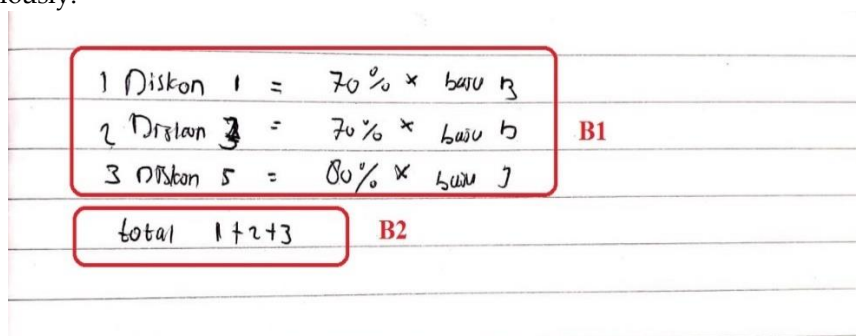 iously.
1 Diskon 1 = 70% * baju B
2 Diskon 3 = 70% * baju D
B1
3 Diskon 5 = 80% * baju J
total 1+2+3
B2